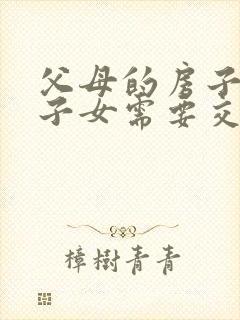 父母的房子
子女需要交
樟树青青